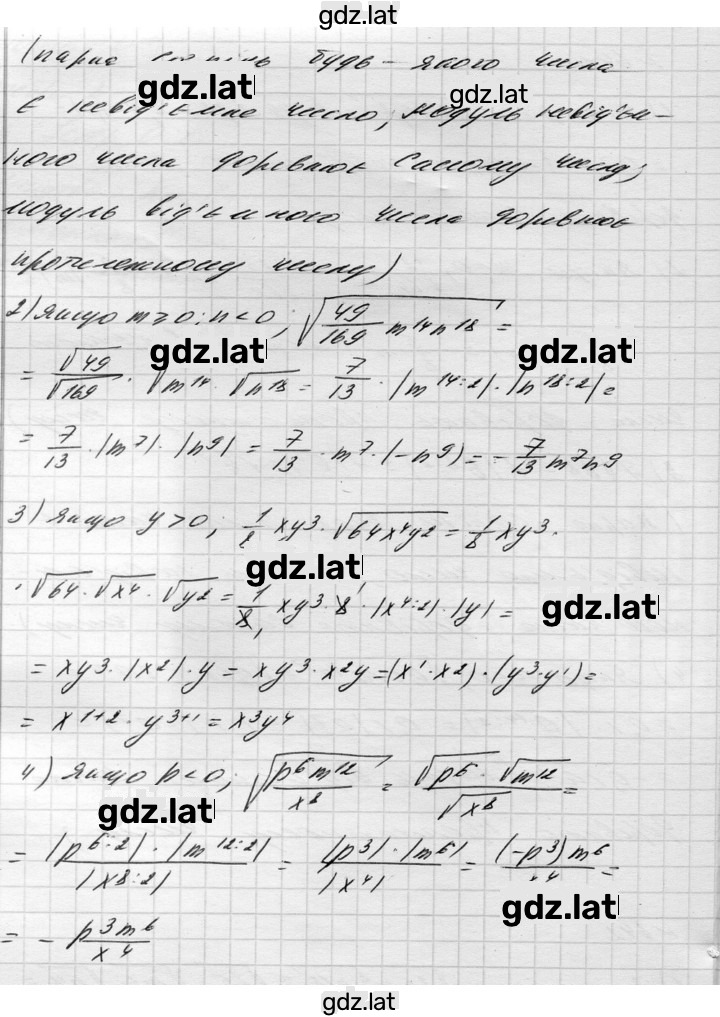 gdz.lat
(парна будь-якого числа
gdz.lat gdz.lat
є невід'ємне число, модуль невід'єм-
ного числа дорівнює самому числу;
модуль від'ємного числа дорівнює
протилежному числу)
2) якщо m ≥ 0; n < 0; √(49/169 m¹⁴n¹⁸) =
gdz.lat gdz.lat
= √49/√169 · √m¹⁴ · √n¹⁸ = 7/13 · |m¹⁴:²| · |n¹⁸:²| =
= 7/13 · |m⁷| · |n⁹| = 7/13 · m⁷ · (-n⁹) = - 7/13 m⁷n⁹
3) якщо y > 0; 1/8 xy³ · √64x⁴y² = 1/8 xy³ ·
gdz.lat
· √64 · √x⁴ · √y² = 1/8 xy³ · 8 · |x⁴:²| · |y| =
gdz.lat
= xy³ · |x²| · y = xy³ · x²y = (x¹ · x²) · (y³ · y¹) =
= x¹⁺² · y³⁺¹ = x³y⁴
4) якщо p < 0; √(p⁶m¹²/x⁸) = √p⁶ · √m¹²/√x⁸ =
gdz.lat
= |p⁶:²| · |m¹²:²|/|x⁸:²| = |p³| · |m⁶|/|x⁴| = (-p³)m⁶/x⁴ =
gdz.lat
= - p³m⁶/x⁴
gdz.lat